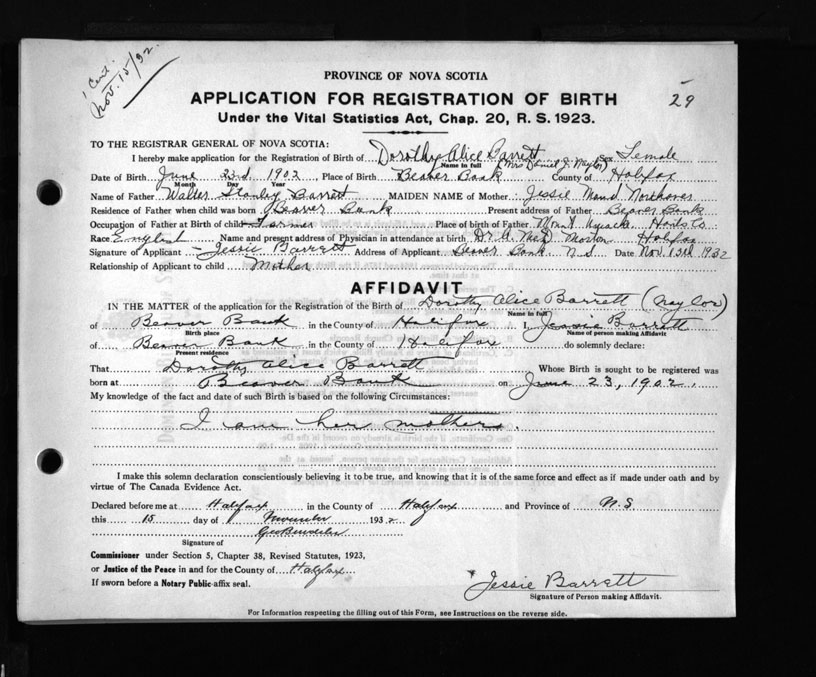 1 Cert.
Nov. 15/32.
29
PROVINCE OF NOVA SCOTIA
APPLICATION FOR REGISTRATION OF BIRTH
Under the Vital Statistics Act, Chap. 20, R. S. 1923.
TO THE REGISTRAR GENERAL OF NOVA SCOTIA:
I hereby make application for the Registration of Birth of Dorothy Alice Barrett Sex Female
Name in full (Mrs Daniel J. Naylor)
Date of Birth June 23rd 1902 Place of Birth Beaver Bank County of Halifax
Month Day Year
Name of Father Walter Stanley Barrett MAIDEN NAME of Mother Jessie Maud Northover
Residence of Father when child was born Beaver Bank Present address of Father Beaver Bank
Occupation of Father at Birth of child Farmer Place of birth of Father Mount Uniacke Hants Co
Race English Name and present address of Physician in attendance at birth Dr. A. McD Morton Halifax
Signature of Applicant Jessie Barrett Address of Applicant Beaver Bank N.S Date Nov. 13th 1932
Relationship of Applicant to child Mother
AFFIDAVIT
IN THE MATTER of the application for the Registration of the Birth of Dorothy Alice Barrett (Naylor)
Name in full
of Beaver Bank in the County of Halifax I, Jessie Barrett
Birth place Name of person making Affidavit
of Beaver Bank in the County of Halifax do solemnly declare:
Present residence
That Dorothy Alice Barrett Whose Birth is sought to be registered was
born at Beaver Bank on June 23, 1902.
My knowledge of the fact and date of such Birth is based on the following Circumstances:
I am her mother.
I make this solemn declaration conscientiously believing it to be true, and knowing that it is of the same force and effect as if made under oath and by
virtue of The Canada Evidence Act.
Declared before me at Halifax in the County of Halifax and Province of N.S
this 15 day of November 1932
Signature of
Commissioner under Section 5, Chapter 38, Revised Statutes, 1923,
or Justice of the Peace in and for the County of Halifax
If sworn before a Notary Public-affix seal.
Jessie Barrett
Signature of Person making Affidavit.
For Information respecting the filling out of this Form, see Instructions on the reverse side.